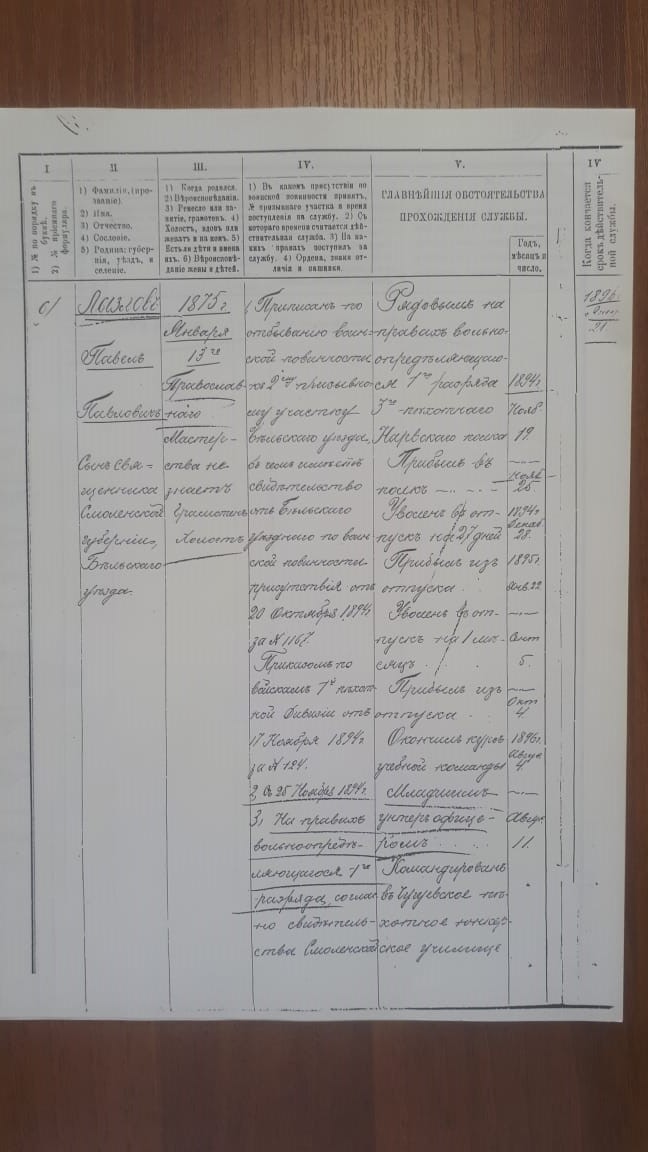 I
II.
III.
IV.
V.
IV
1) № по порядку въ
буквѣ.
2) № пріемнаго
формуляра.
1) Фамилія, (про-
званіе).
2) Имя.
3) Отчество.
4) Сословіе.
5) Родина; губер-
нія, уѣздъ, и
селеніе.
1) Когда родился.
2) Вѣроисповѣданіе.
3) Ремесло или за-
нятіе, грамотенъ. 4)
Холостъ, вдовъ или
женатъ и на комъ. 5)
Есть ли дѣти и имена
ихъ. 6) Вѣроисповѣ-
даніе жены и дѣтей.
1) Въ какомъ присутствіи по
воинской повинности принятъ,
№ призывнаго участка и время
поступленія на службу. 2) Съ
котораго времени считается дѣй-
ствительная служба. 3) На ка-
кихъ правахъ поступилъ на
службу. 4) Ордена, знаки от-
личія и нашивки.
ГЛАВНѢЙШІЯ ОБСТОЯТЕЛЬСТВА
ПРОХОЖДЕНІЯ СЛУЖБЫ.
Годъ,
мѣсяцъ и
число.
Когда кончается
срокъ дѣйствитель-
ной службы.
Павелъ
Павловичъ
Сынъ свя-
щенника
Смоленской
губерніи,
Бѣльскаго
уѣзда.
1875 г.
Января
13го
Православ-
наго
Мастер-
ства не
знаетъ
Грамотенъ
Холостъ
1, Приписанъ по
отбыванію воин-
ской повинности
ко 2му призывно-
му участку
Бѣльскаго уѣзда,
въ чемъ имѣетъ
свидѣтельство
отъ Бѣльскаго
уѣзднаго по воин-
ской повинности
присутствія отъ
20 Октября 1894г.
за № 1167.
Приказомъ по
войскамъ 1й пѣхот-
ной дивизіи отъ
17 Ноября 1894г
за № 124.
2, съ 25 Ноября 1894г.
3, На правахъ
вольноопредѣ-
ляющагося 1го
разряда, соглас-
но свидѣтель-
ства Смоленской
Рядовымъ на
правахъ вольно-
опредѣляющаго-
ся 1го разряда
3го пѣхотнаго
Нарвскаго полка
Прибылъ въ
полкъ
Уволенъ въ от-
пускъ на 27 дней
Прибылъ изъ
отпуска.
Уволенъ въ от-
пускъ на 1 мѣ-
сяцъ
Прибылъ изъ
отпуска
Окончилъ курсъ
учебной команды
Младшимъ
унтеръ офице-
ромъ
Командированъ
въ Чугуевское пѣ-
хотное юнкер-
ское училище
1894г.
Нояб.
19.
Нояб
25
1894г
Декаб.
28.
1895г.
Янв. 22
Сент
5.
Окт
4.
1896г.
Август
4
Август.
11.
1896
21